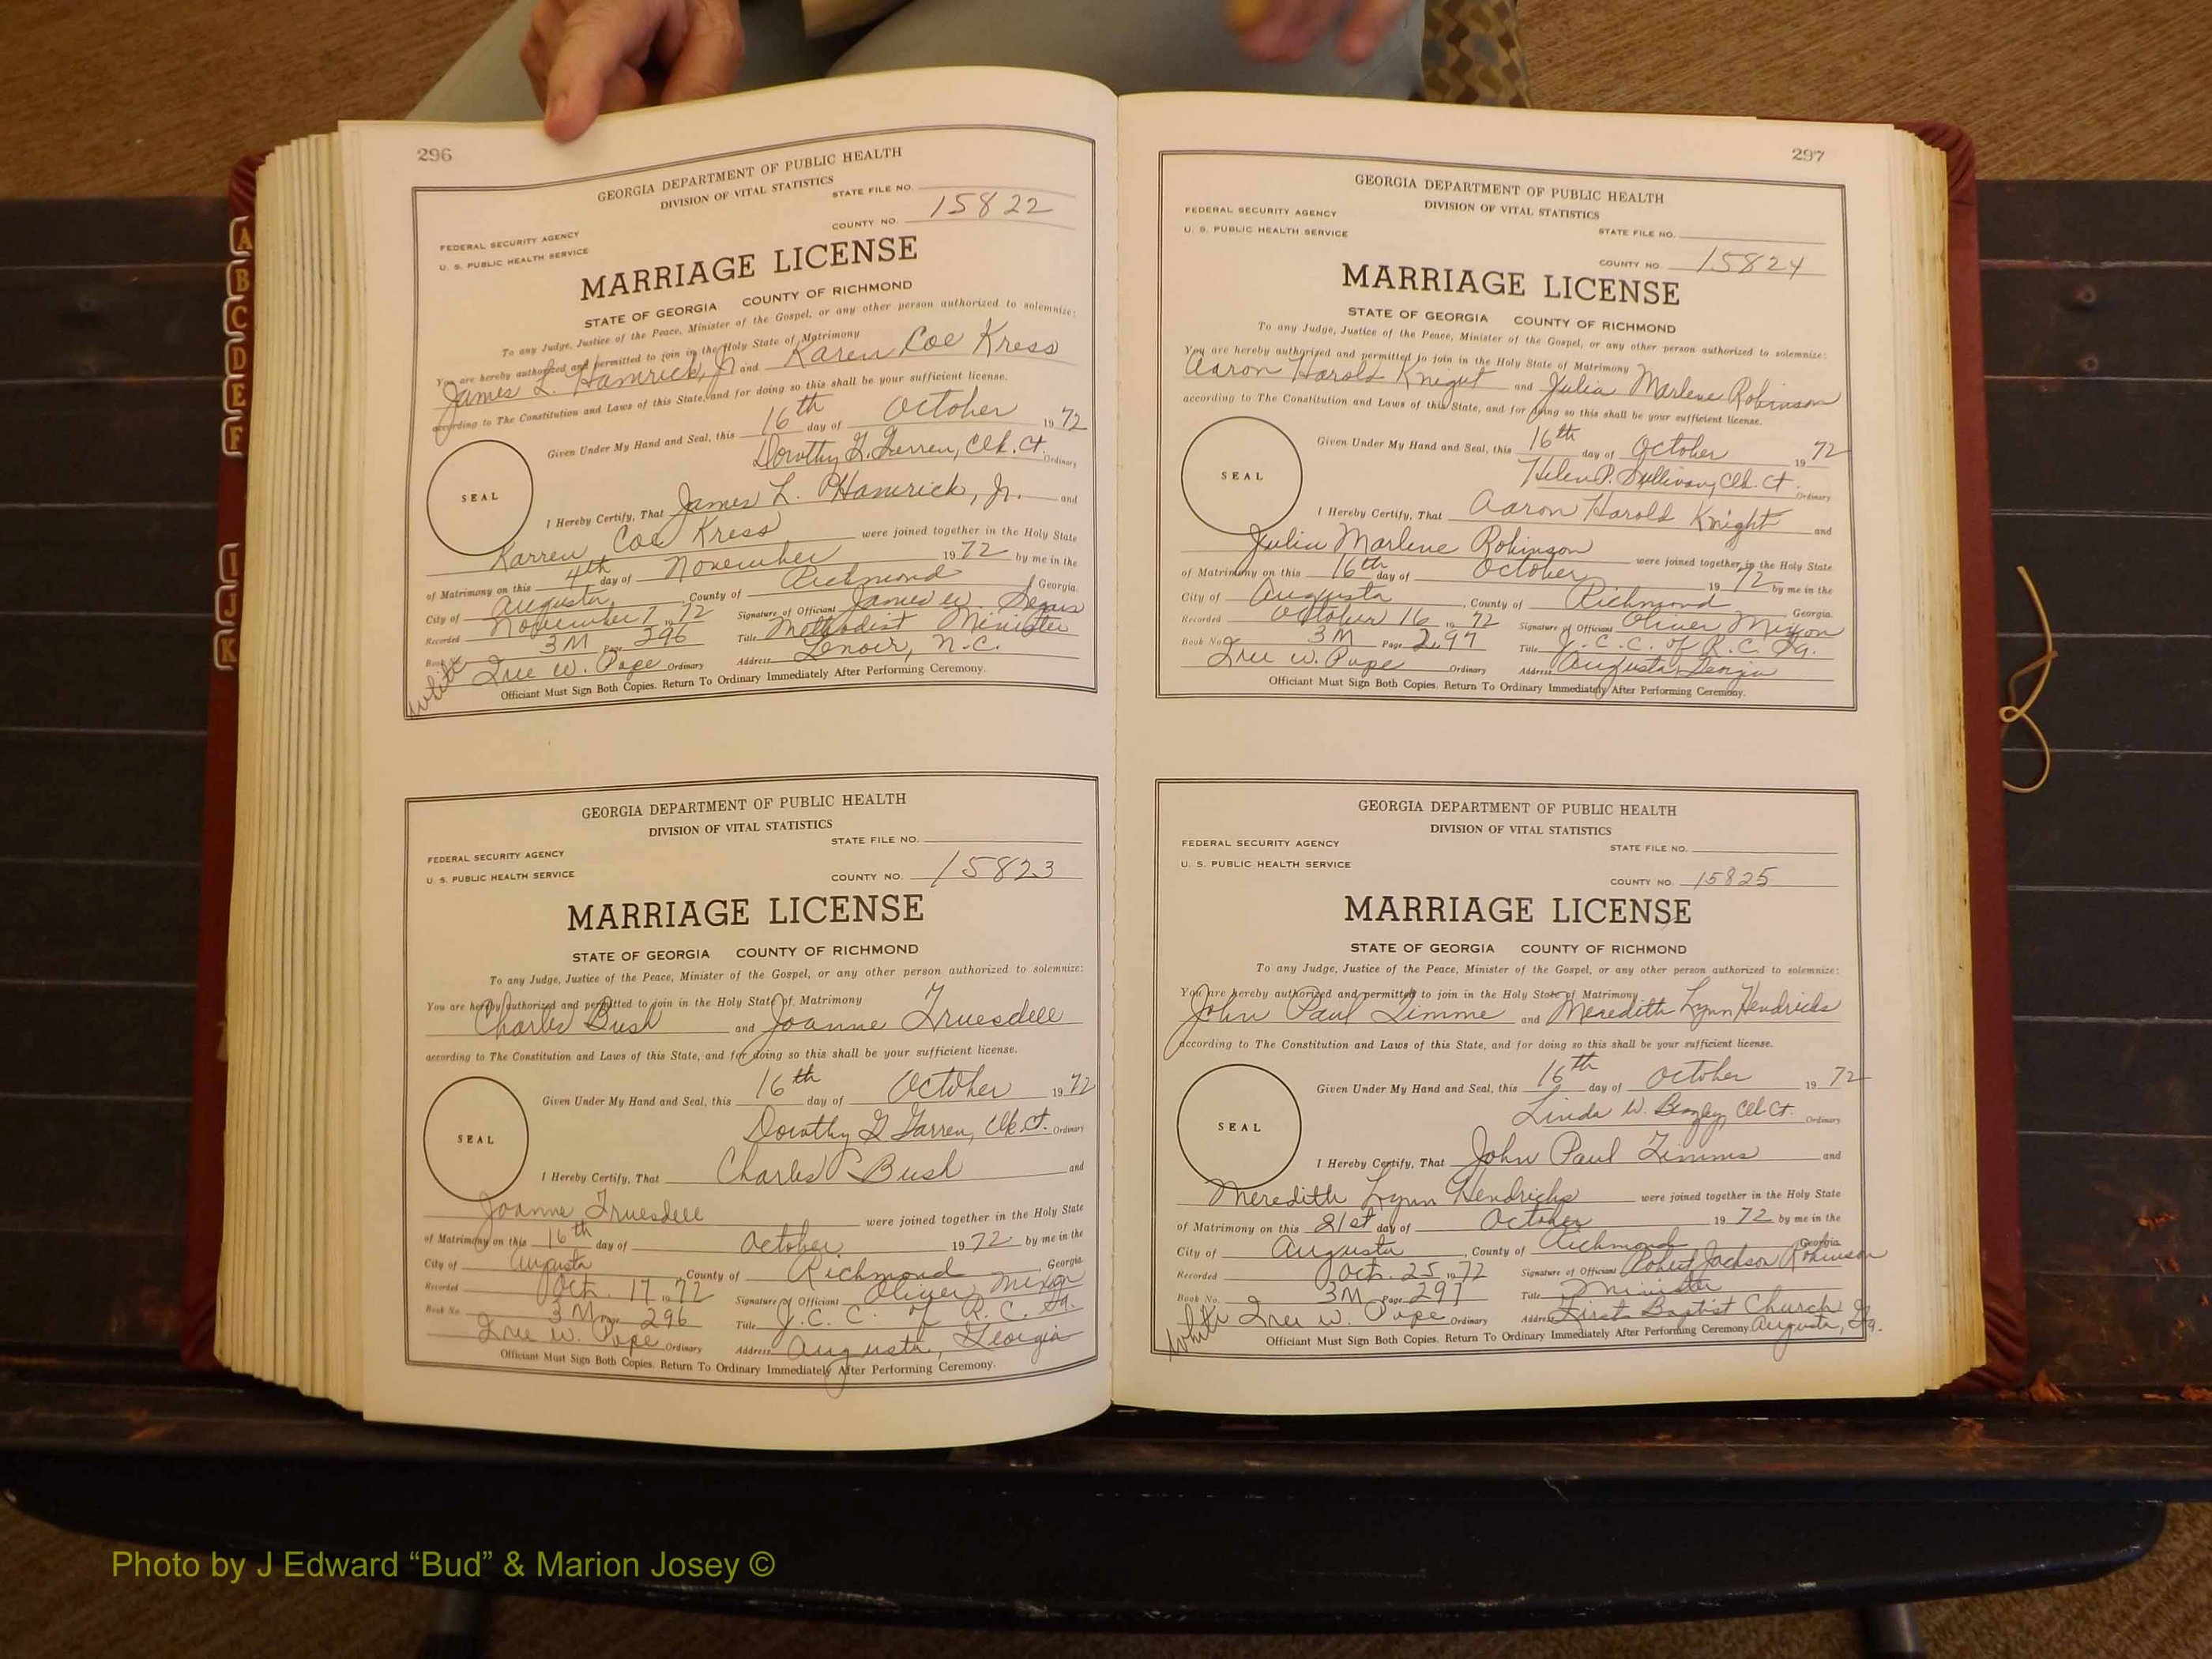 296
GEORGIA DEPARTMENT OF PUBLIC HEALTH
DIVISION OF VITAL STATISTICS
STATE FILE NO.
COUNTY NO. 15822
FEDERAL SECURITY AGENCY
U. S. PUBLIC HEALTH SERVICE
MARRIAGE LICENSE
STATE OF GEORGIA COUNTY OF RICHMOND
To any Judge, Justice of the Peace, Minister of the Gospel, or any other person authorized to solemnize:
You are hereby authorized and permitted to join in the Holy State of Matrimony
James L. Hamrick, Jr and Karen Coe Kress
according to The Constitution and Laws of this State, and for doing so this shall be your sufficient license.
Given Under My Hand and Seal, this 16th day of October 1972
Dorothy G. Clk. Ct. Ordinary
SEAL
I Hereby Certify, That James L. Hamrick, Jr. and
Karren Coe Kress were joined together in the Holy State
of Matrimony on this 4th day of November 1972 by me in the
City of Augusta, County of Richmond Georgia
Recorded November 7 1972 Signature of Officiant James W.
Book No. 3M Page 296 Title Methodist Minister
W. Pope Ordinary Address Lenoir, N.C.
white
Officiant Must Sign Both Copies. Return To Ordinary Immediately After Performing Ceremony.
GEORGIA DEPARTMENT OF PUBLIC HEALTH
DIVISION OF VITAL STATISTICS
STATE FILE NO.
FEDERAL SECURITY AGENCY
U. S. PUBLIC HEALTH SERVICE
COUNTY NO. 15823
MARRIAGE LICENSE
STATE OF GEORGIA COUNTY OF RICHMOND
To any Judge, Justice of the Peace, Minister of the Gospel, or any other person authorized to solemnize:
You are hereby authorized and permitted to join in the Holy State of Matrimony
Charles Bush and Joanne Truesdell
according to The Constitution and Laws of this State, and for doing so this shall be your sufficient license.
Given Under My Hand and Seal, this 16th day of October 1972
Dorothy G Clk. Ct. Ordinary
SEAL
I Hereby Certify, That Charles Bush and
Joanne Truesdell were joined together in the Holy State
of Matrimony on this 16th day of October 1972 by me in the
City of Augusta County of Richmond, Georgia
Recorded Oct. 17 1972 Signature of Officiant Oliver Mixon
Book No. 3M Page 296 Title J. C. C. of R. C. Ga.
W. Pope Ordinary Address Augusta, Georgia
Officiant Must Sign Both Copies. Return To Ordinary Immediately After Performing Ceremony.
297
GEORGIA DEPARTMENT OF PUBLIC HEALTH
DIVISION OF VITAL STATISTICS
FEDERAL SECURITY AGENCY
U. S. PUBLIC HEALTH SERVICE
STATE FILE NO.
COUNTY NO. 15824
MARRIAGE LICENSE
STATE OF GEORGIA COUNTY OF RICHMOND
To any Judge, Justice of the Peace, Minister of the Gospel, or any other person authorized to solemnize:
You are hereby authorized and permitted to join in the Holy State of Matrimony
Aaron Harold Knight and Julia Marlene Robinson
according to The Constitution and Laws of this State, and for doing so this shall be your sufficient license.
Given Under My Hand and Seal, this 16th day of October 1972
Helen P. Sullivan, Clk. Ct. Ordinary
SEAL
I Hereby Certify, That Aaron Harold Knight and
Julia Marlene Robinson were joined together in the Holy State
of Matrimony on this 16th day of October 1972 by me in the
City of Augusta, County of Richmond Georgia
Recorded October 16 1972 Signature of Officiant Oliver Mixon
Book No. 3M Page 297 Title J. C. C. of R. C. Ga.
W. Pope Ordinary Address Augusta, Georgia
Officiant Must Sign Both Copies. Return To Ordinary Immediately After Performing Ceremony.
GEORGIA DEPARTMENT OF PUBLIC HEALTH
DIVISION OF VITAL STATISTICS
FEDERAL SECURITY AGENCY
STATE FILE NO.
U. S. PUBLIC HEALTH SERVICE
COUNTY NO. 15825
MARRIAGE LICENSE
STATE OF GEORGIA COUNTY OF RICHMOND
To any Judge, Justice of the Peace, Minister of the Gospel, or any other person authorized to solemnize:
You are hereby authorized and permitted to join in the Holy State of Matrimony
John Paul and Meredith Lynn Hendricks
according to The Constitution and Laws of this State, and for doing so this shall be your sufficient license.
Given Under My Hand and Seal, this 16th day of October 1972
Linda W. Clk. Ct. Ordinary
SEAL
I Hereby Certify, That John Paul and
Meredith Lynn Hendricks were joined together in the Holy State
of Matrimony on this 21st day of October 1972 by me in the
City of Augusta, County of Richmond Georgia
Recorded Oct. 25 1972 Signature of Officiant Robert Jackson Robinson
Book No. 3M Page 297 Title Minister
W. Pope Ordinary Address First Baptist Church
white
Officiant Must Sign Both Copies. Return To Ordinary Immediately After Performing Ceremony. Augusta, Ga.
A
B
C
D
E
F
I
J
K
Photo by J Edward “Bud” & Marion Josey ©